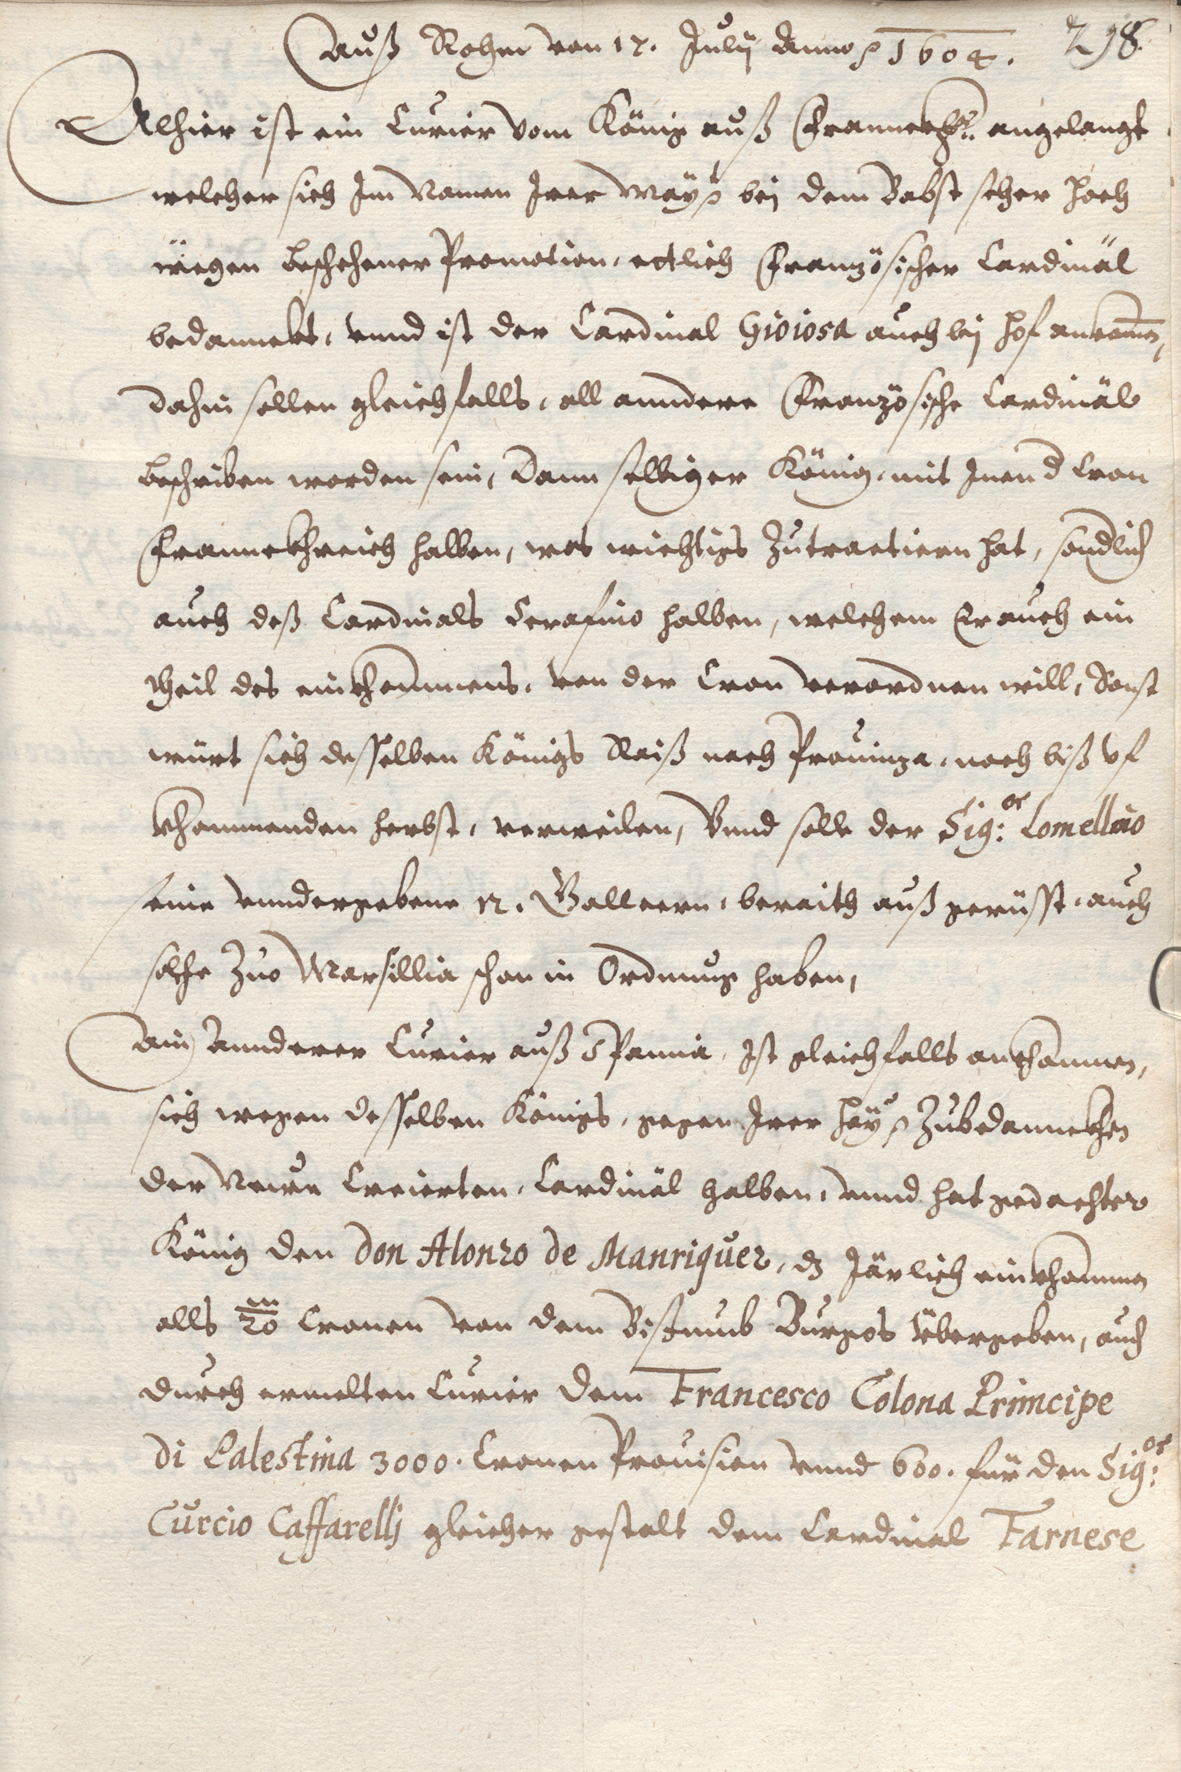 Auß Rohm von 17. Julij Anno 1604. 298.
Alhier ist ein Curier vom König auß Franckhr: angelangt,
welcher sich Im Namen Irer Mayt bej dem Babst seher hoch
wegen beschehener Promotion, ettlich Französischer Cardinäl
bedannckt, vnnd ist der Cardinal Gioiosa auch bej hof ankomen,
dahin sollen gleichfalls, all anndere Französische Cardinäle
beschriben worden sein, Dann selbiger König, mit Inen d Cron
Frannckhreich halben, was wichtigs Zutractiern hat, sondlich
auch deß Cardinals Serafino halben, welchem Er auch ein
theil des einkhommens, von der Cron verordnen will, Sonst
würt sich desselben Königs Raiß nach Prouinza, noch biß vf
khommenden herbst, verweilen, Vnnd solle der Sig:or Lomellino
seine vndergebene 12. Galleern, beraith außgerüsst, auch
solche Zuo Marsillia schon in Ordnung haben,
Ain Annderer Curier auß Spannia, Ist gleichfalls ankhommen,
sich wegen desselben Königs, gegen Irer Hayt Zubedannckhen
der Neuen Creierten, Cardinäl halben, vnnd hat gedachter
König den Don Alonzo de Manriquez, dz Järlich einkhommen
alls 20 m Cronen von dem Bistumb Burgos Übergeben, auch
durch ermelten Curier dem Francesco Colona Principe
di Palestina 3000. Cronen Prouision vnnd 600. für den Sig:or
Curcio Caffarellj gleicher gestalt dem Cardinal Farnese